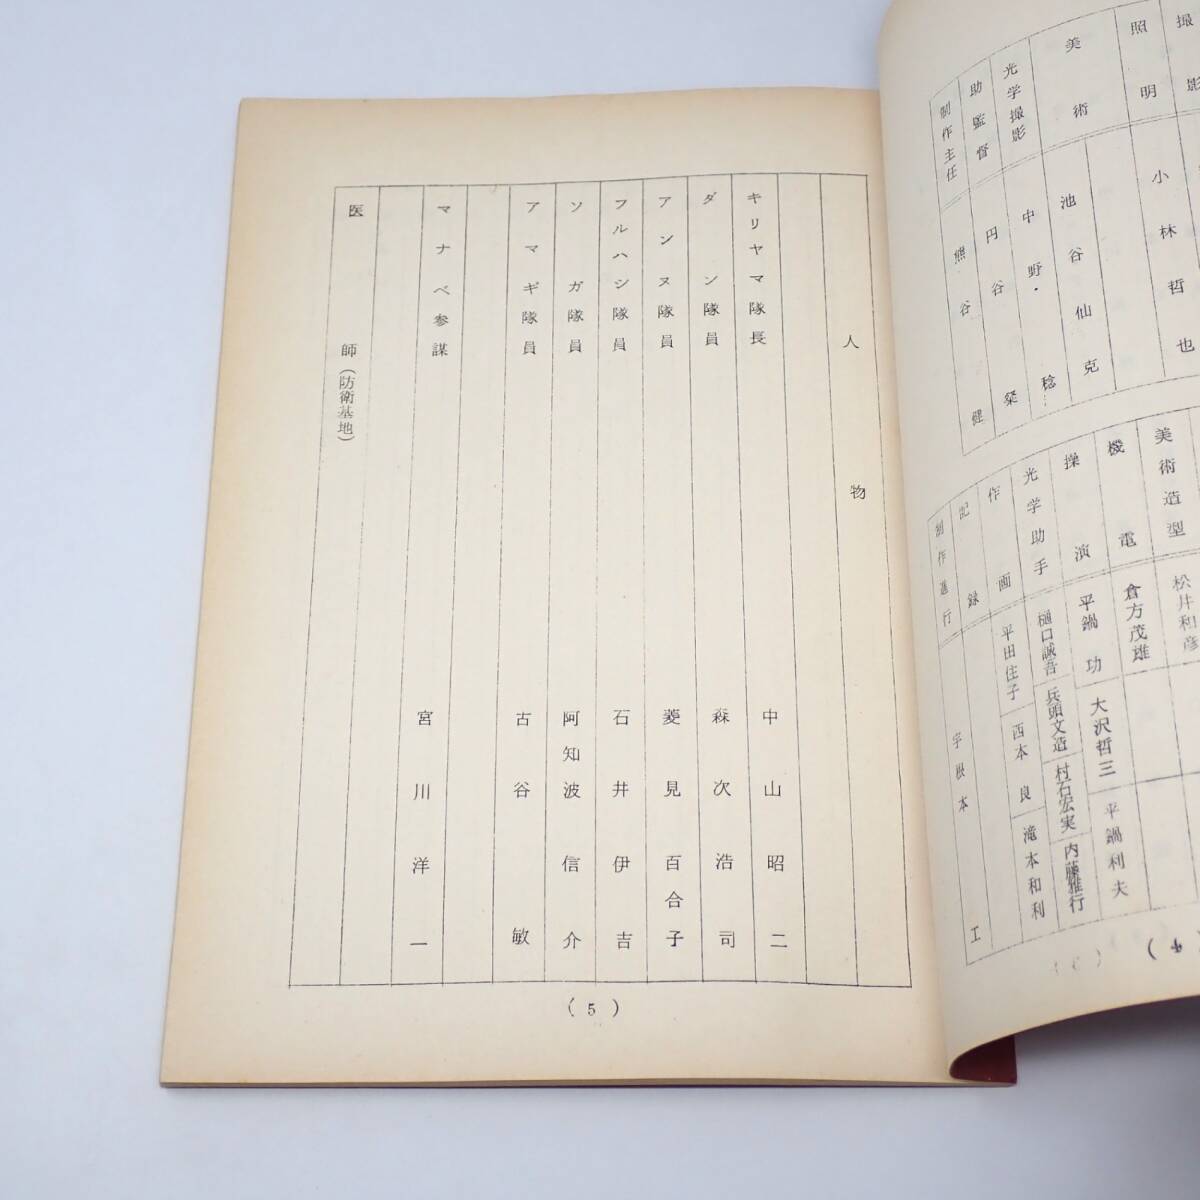 撮影
照明　小林哲也
美術
池谷仙克
光学撮影　中野・稔
助監督　円谷粲
制作主任　熊谷健
松井和彦
美術造型
機電　倉方茂雄
操演　平鍋功　大沢哲三　平鍋利夫
光学助手　樋口誠吾　兵頭文造　村石宏実　内藤雅行
作画　平田佳子　西本良　滝本和利
記録
制作進行　宇根本　工
(4)
人物
キリヤマ隊長　中山昭二
ダン隊員　森次浩司
アンヌ隊員　菱見百合子
フルハシ隊員　石井伊吉
ソガ隊員　阿知波信介
アマギ隊員　古谷敏
マナベ参謀　宮川洋一
医師（防衛基地）
(5)